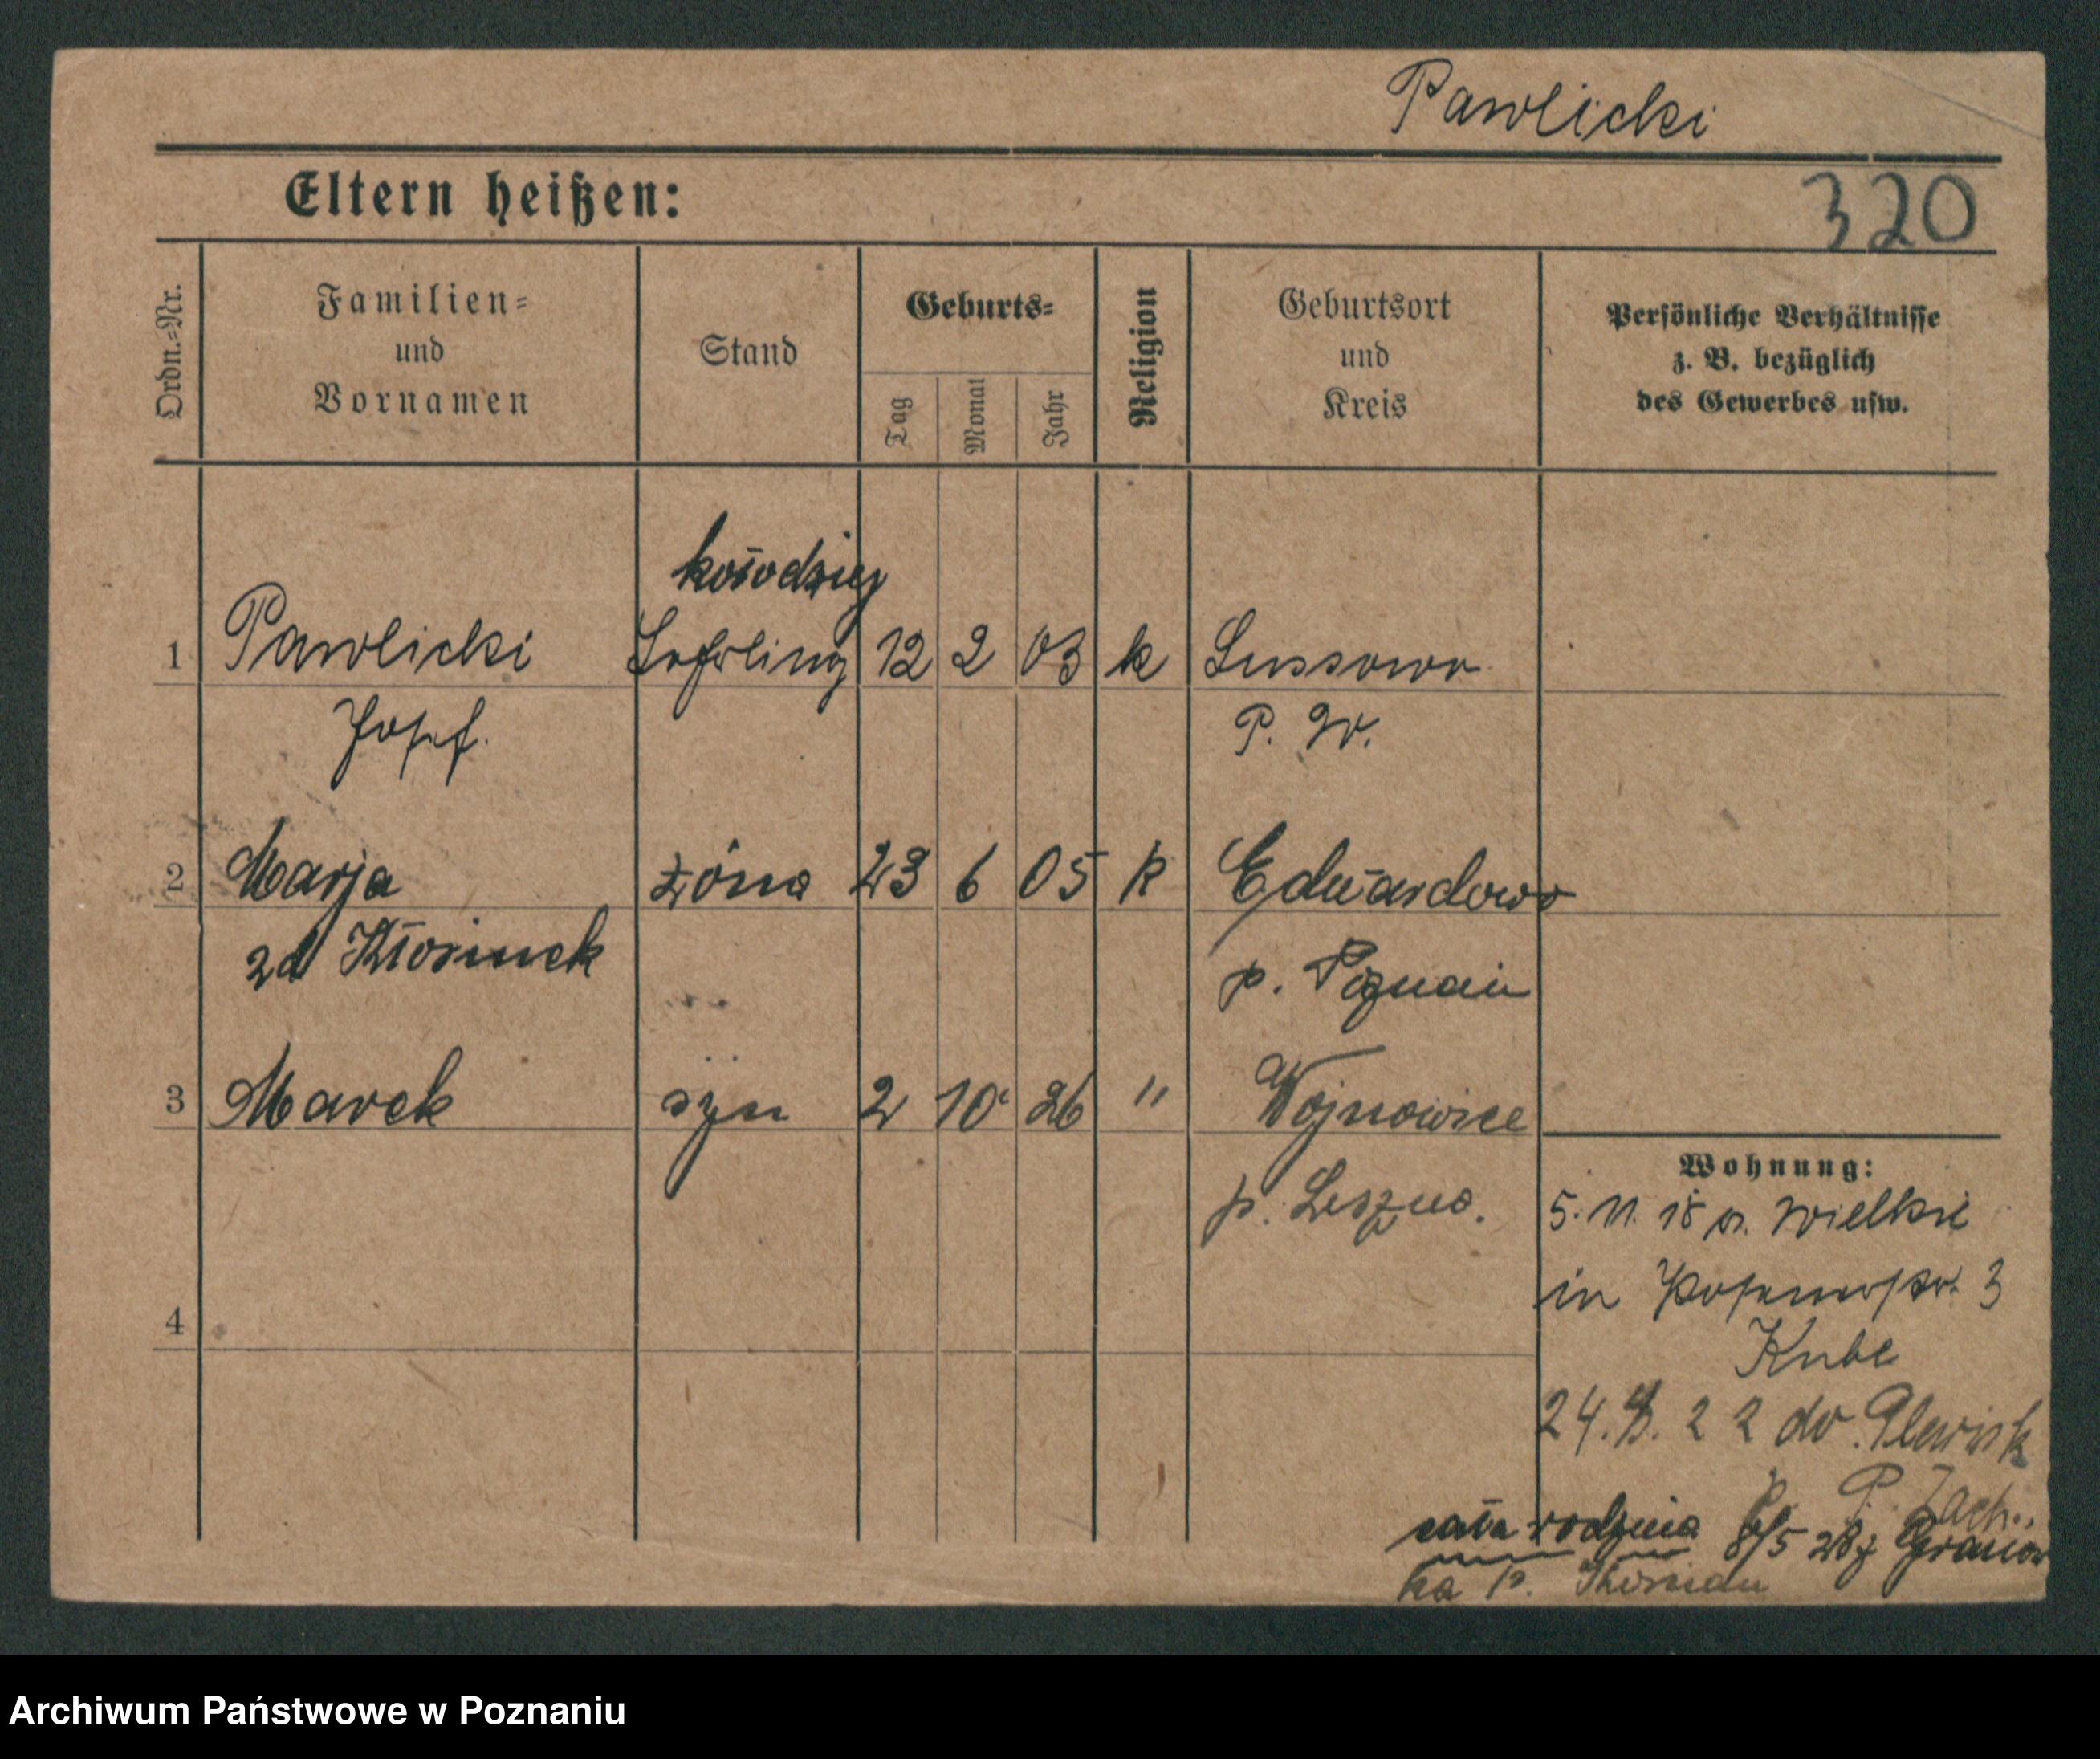 Pawlicki
Eltern heißen:
320
Ordn.=Nr.
Familien=
und
Vornamen
Stand
Geburts=
Tag
Monat
Jahr
Religion
Geburtsort
und
Kreis
Persönliche Verhältnisse
z. B. bezüglich
des Gewerbes usw.
kołodziej
1 Pawlicki Lehrling 12 2 03 k Lussowo
Josef. P. W.
2 Marja żóna 23 6 05 k Eduardowo
zd p. Poznań
3 Marek syn 2 10 26 " Wojnowice
p. Leszno.
Wohnung:
5. 11. 18 Wielkie
in Posenerstr. 3
Kube
4
24. 22 do Plewisk
P. Zach.
cała rodzina 8/5 28 z Granow
ka p.
Archiwum Państwowe w Poznaniu